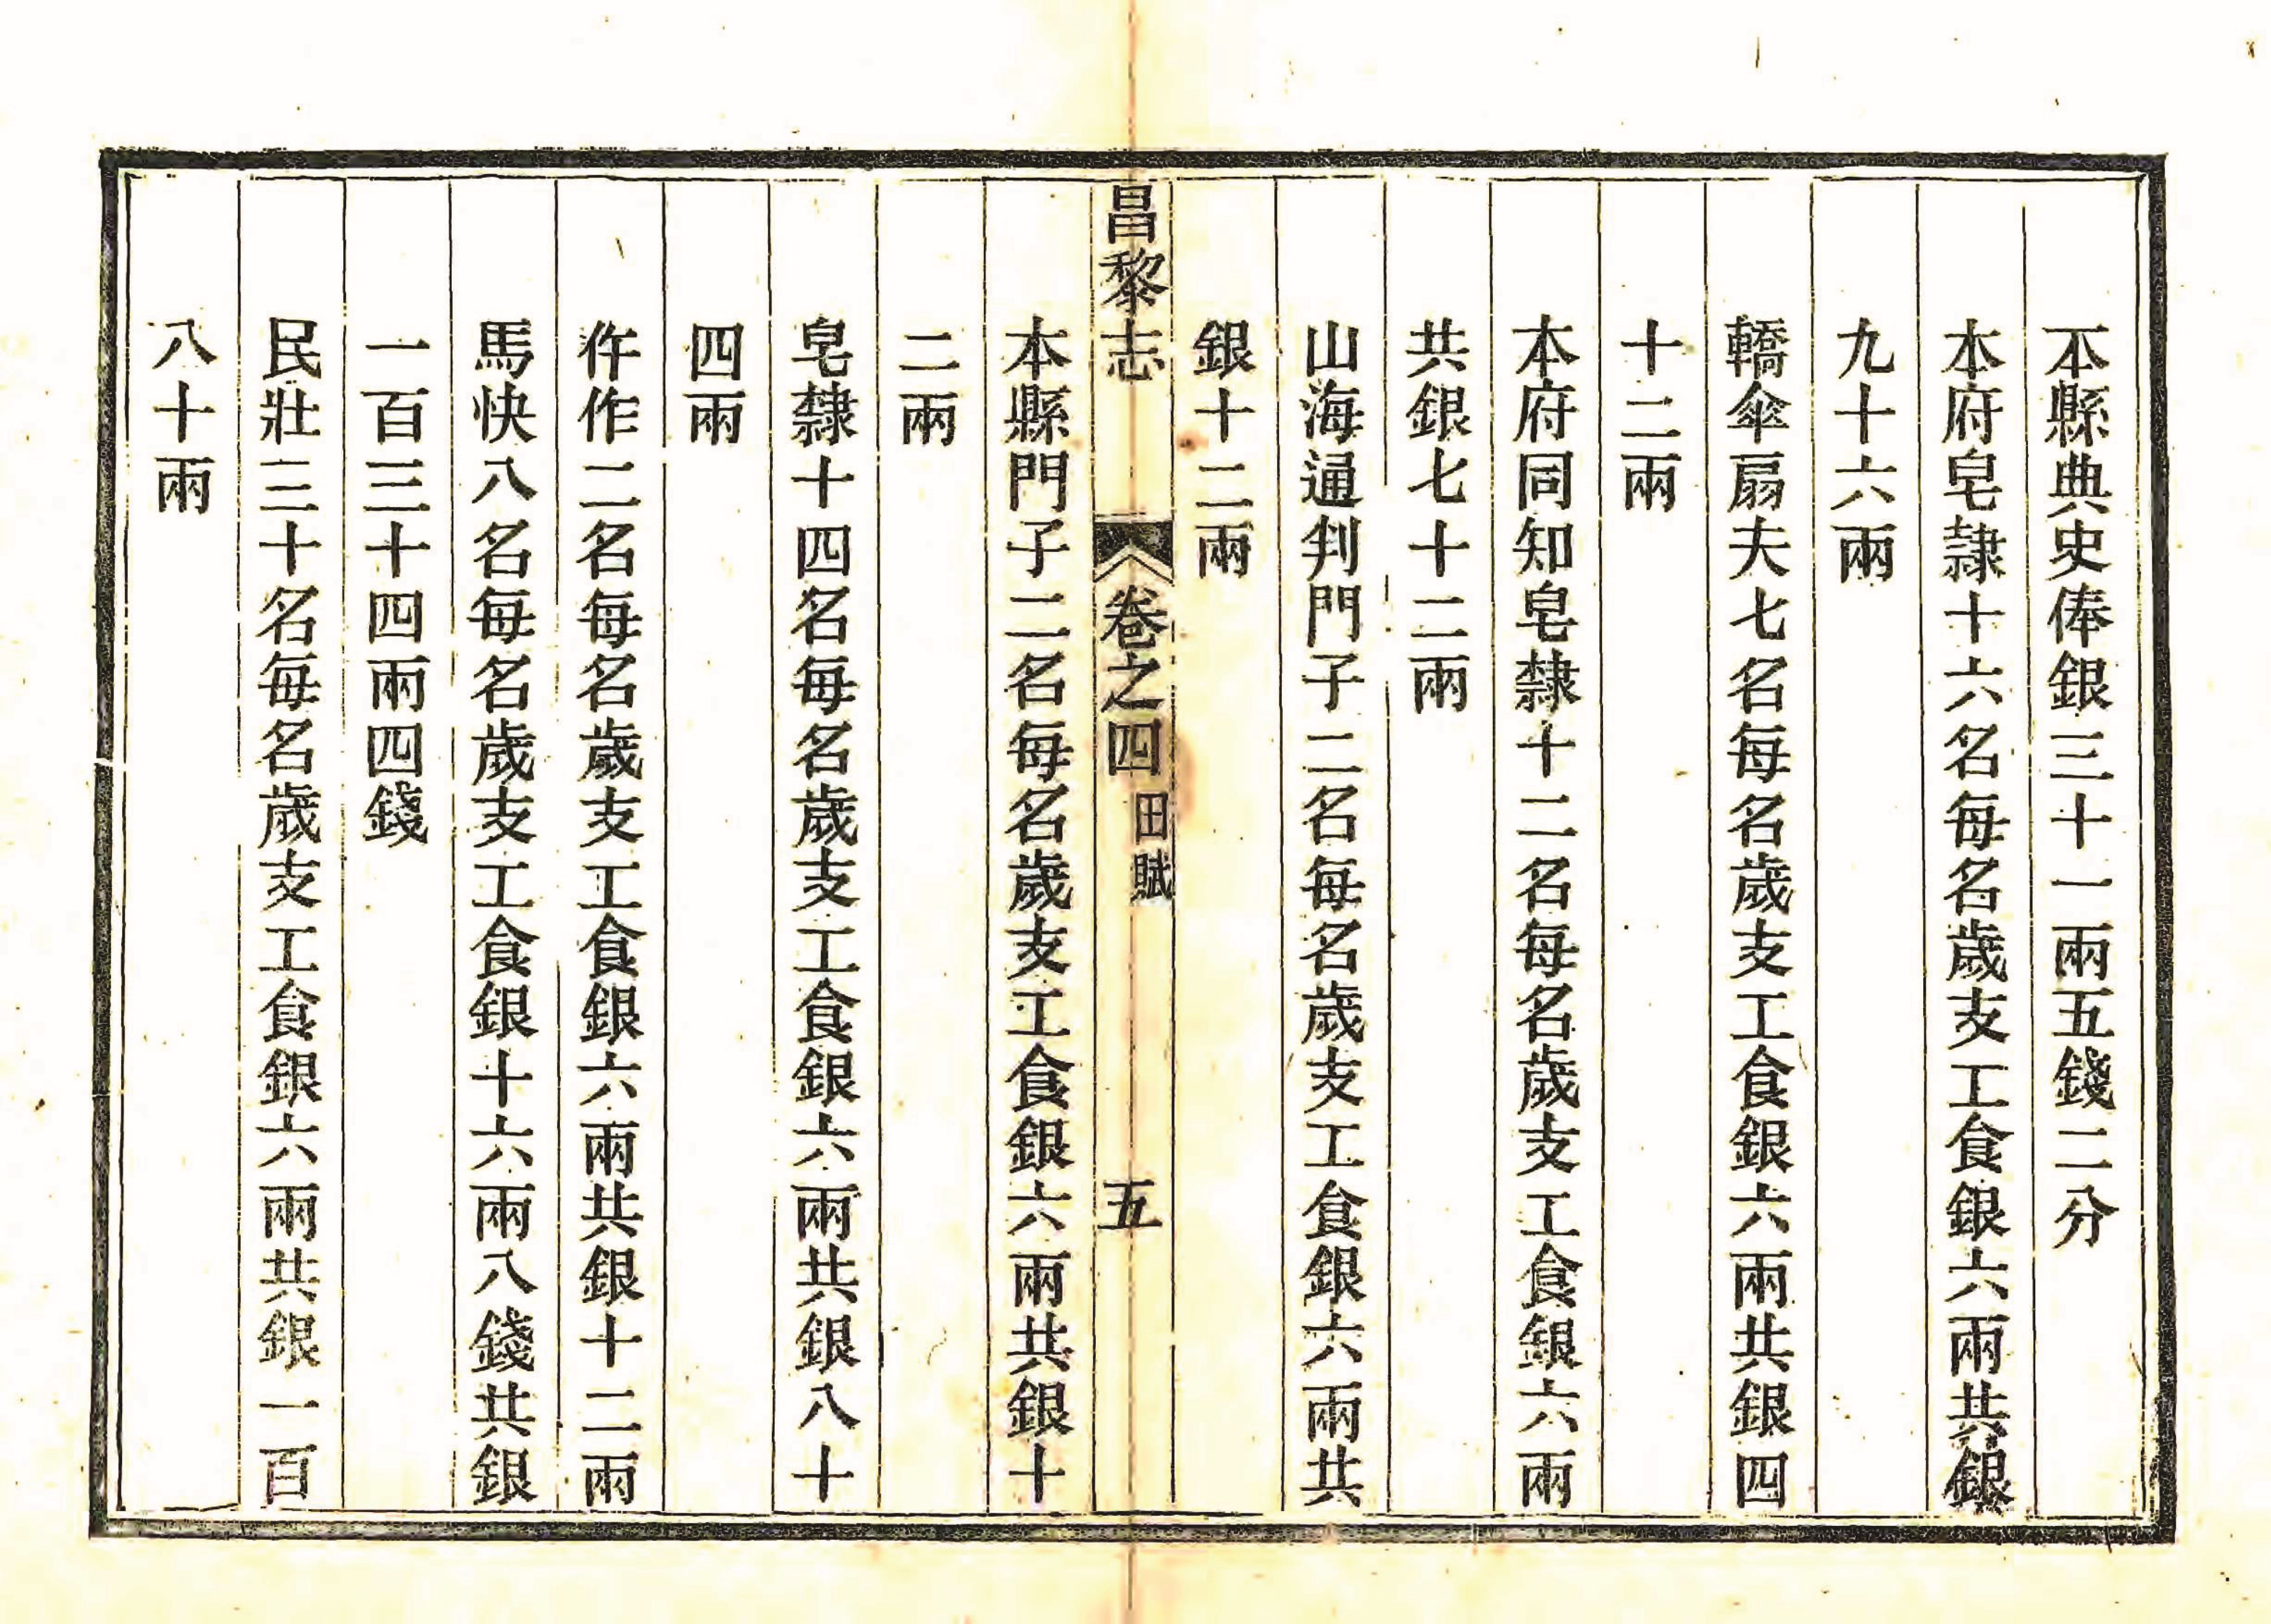 本縣典史俸銀三十一兩五錢二分
本府皂隸十六名每名歲支工食銀六兩共銀
九十六兩
轎傘扇夫七名每名歲支工食銀六兩共銀四
十二兩
本府同知皂隸十二名每名歲支工食銀六兩
共銀七十二兩
山海通判門子二名每名歲支工食銀六兩共
銀十二兩
昌黎志 卷之四 田賦 五
本縣門子二名每名歲支工食銀六兩共銀十
二兩
皂隸十四名每名歲支工食銀六兩共銀八十
四兩
仵作二名每名歲支工食銀六兩共銀十二兩
馬快八名每名歲支工食銀十六兩八錢共銀
一百三十四兩四錢
民壯三十名每名歲支工食銀六兩共銀一百
八十兩